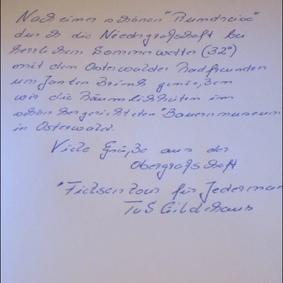 Nach einer schönen "Rundreise"
durch die Niedergrafschaft bei
herrlichem Sommerwetter (32°)
mit den Osterwalder Radfreunden
um Janten Brink genießen
wir die Räumlichkeiten im
schön hergerichteten Bauernmuseum
in Osterwald.
Viele Grüße aus der
Obergrafschaft
"Fietsentour für Jederman
TuS Gildehaus